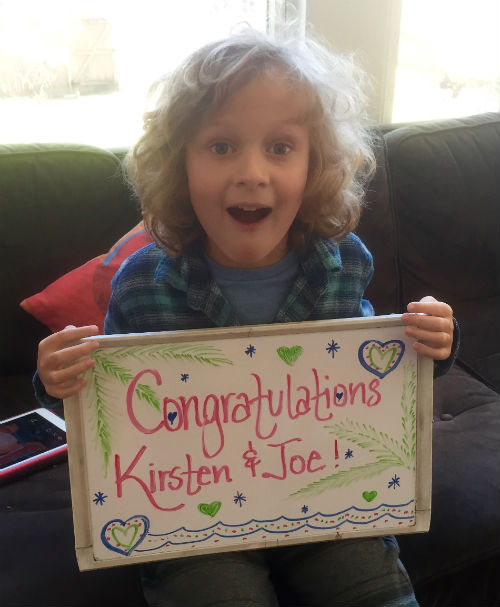 Congratulations
Kirsten & Joe!